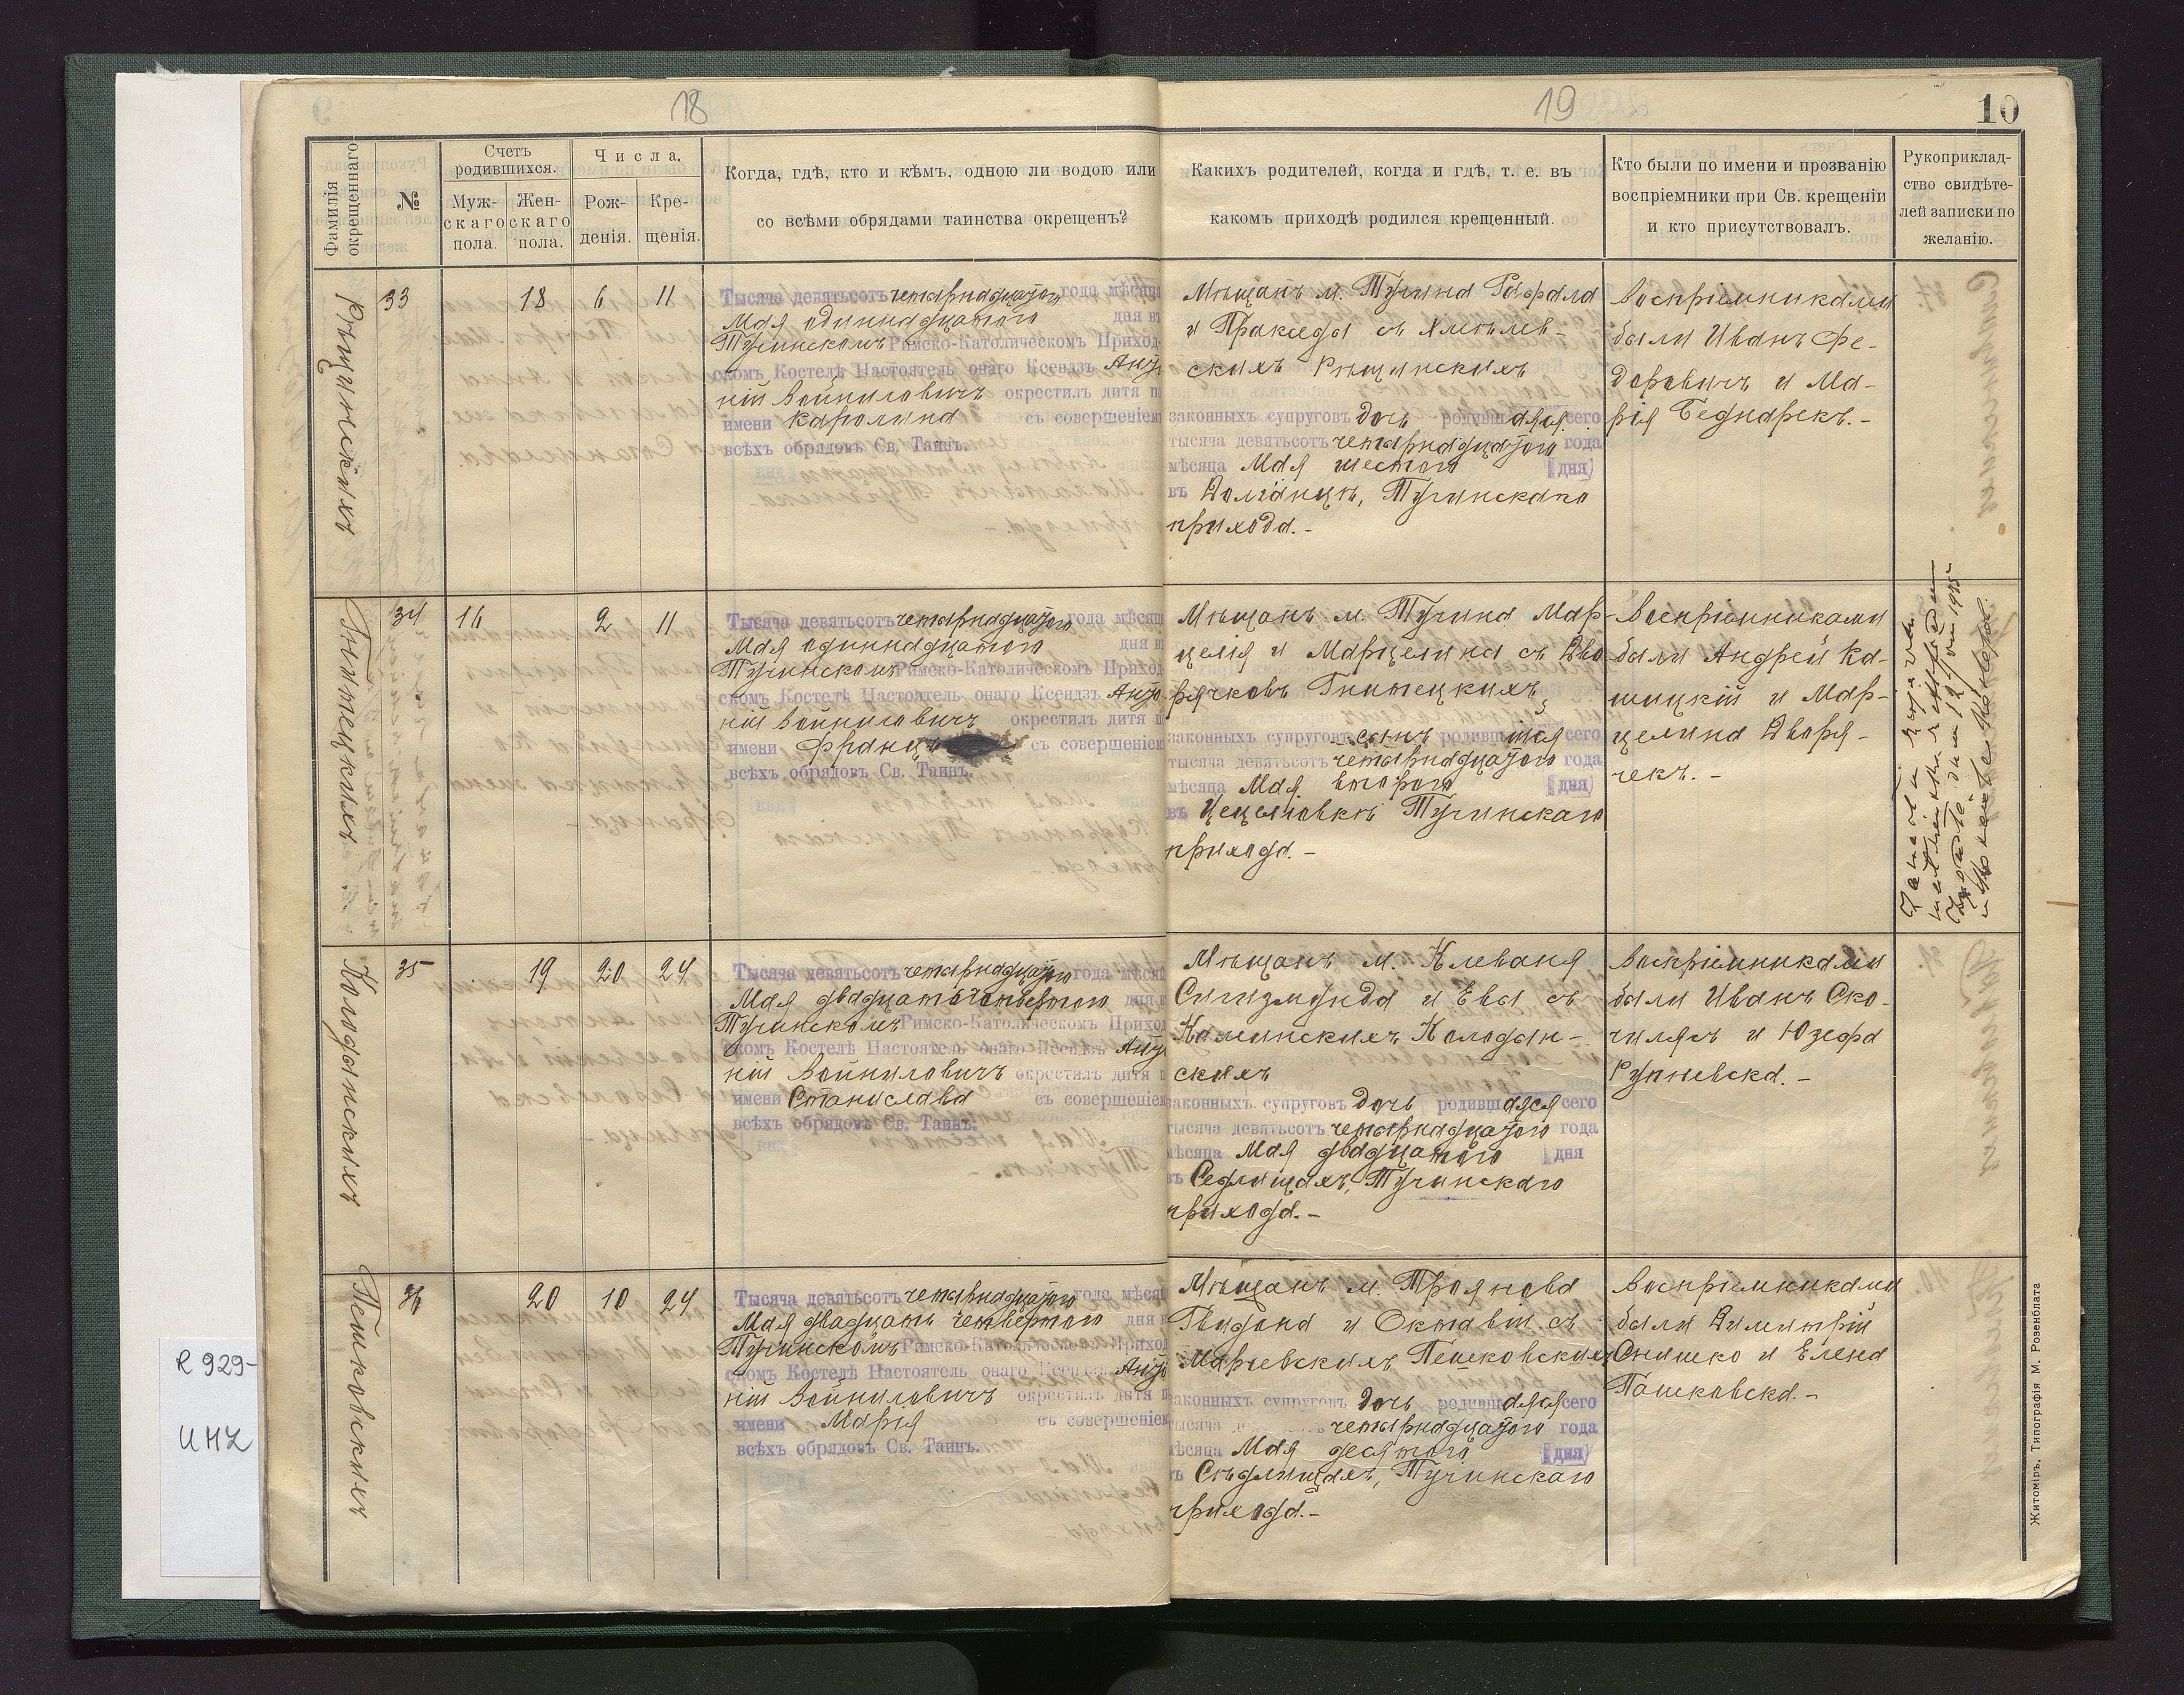 18
19
10
Фамилія окрещеннаго
№
Счетъ родившихся.
Мужскаго пола.
Женскаго пола.
Числа.
Рожденія.
Крещенія.
Когда, гдѣ, кто и кѣмъ, одною ли водою или
со всѣми обрядами таинства окрещенъ?
Какихъ родителей, когда и гдѣ, т. е. въ
какомъ приходѣ родился крещенный.
Кто были по имени и прозванію
воспріемники при Св. крещеніи
и кто присутствовалъ.
Рукоприклад-
ство свидѣте-
лей записки по
желанію.
Рѣщинскихъ
33
18
6
11
Тысяча девятьсотъ четырнадцатого года мѣсяца
Мая одиннадцатого дня въ
Тучинскомъ Римско-Католическомъ Приход-
скомъ Костелѣ Настоятель онаго Ксендзъ Анто
ній Войниловичъ окрестилъ дитя п
имени Каролина съ совершеніем
всѣхъ обрядовъ Св. Таинъ.
Мѣщанъ м. Тучина Рафала
и Пракседы съ Хмѣлев-
скихъ Рѣщинскихъ
законныхъ супруговъ дочь родившаяся сего
тысяча девятьсотъ четырнадцатого года
мѣсяца Мая шестого (дня)
въ Долганцѣ, Тучинскаго
прихода.-
Воспріемниками
были Иванъ Фе-
доровичъ и Ма-
рія Беднарекъ.-
Гнитецкихъ
34
16
2
11
Тысяча девятьсотъ четырнадцатого года мѣсяц
Мая одиннадцатого дня в
Тучинскомъ Римско-Католическомъ Приход
скомъ Костелѣ Настоятель онаго Ксендзъ Анто
ній Войниловичъ окрестилъ дитя п
имени Францъ съ совершеніем
всѣхъ обрядовъ Св. Таинъ.
Мѣщанъ м. Тучина Мар-
целія и Марцелина съ Дво
рячковъ Гнитецкихъ
законныхъ супруговъ сынъ родившійся сего
тысяча девятьсотъ четырнадцатого года
мѣсяца Мая второго (дня)
въ Цецеловкѣ Тучинскаго
прихода.-
Воспріемниками
были Андрей Ка-
шицкій и Мар-
целина Дворя-
чекъ.-
Колодынскихъ
35
19
20
24
Тысяча девятьсотъ четырнадцатого года мѣсяц
Мая двадцать четвертого дня в
Тучинскомъ Римско-Католическомъ Приход
скомъ Костелѣ Настоятель онаго Ксендзъ Анто
ній Войниловичъ окрестилъ дитя п
имени Станислава съ совершеніем
всѣхъ обрядовъ Св. Таинъ.
Мѣщанъ м. Клеваня
Сигизмунда и Евы съ
Каминскихъ Колодын-
скихъ
законныхъ супруговъ дочь родившаяся сего
тысяча девятьсотъ четырнадцатого года
мѣсяца Мая двадцатого (дня
въ Седлищахъ, Тучинскаго
прихода.-
Воспріемниками
были Иванъ Ско-
чилясъ и Юзефа
Рупневска.-
Пешковскихъ
36
20
10
24
Тысяча девятьсотъ четырнадцатого года мѣсяц
Мая двадцать четвертого дня в
Тучинскомъ Римско-Католическомъ Приход
скомъ Костелѣ Настоятель онаго Ксендзъ Анто
ній Войниловичъ окрестилъ дитя п
имени Марія съ совершеніем
всѣхъ обрядовъ Св. Таинъ.
Мѣщанъ м. Троянова
Гвидона и Октавіи съ
Марчевскихъ Пешковскихъ
законныхъ супруговъ дочь родившаяся сего
тысяча четырнадцатого года
мѣсяца Мая десятого (дня)
въ Сѣдлищахъ, Тучинскаго
прихода.-
Воспріемниками
были Димитрій
Снишко и Елена
Пашковска.-
Житоміръ, Типографія М. Розенблата
R 929-
UMZ